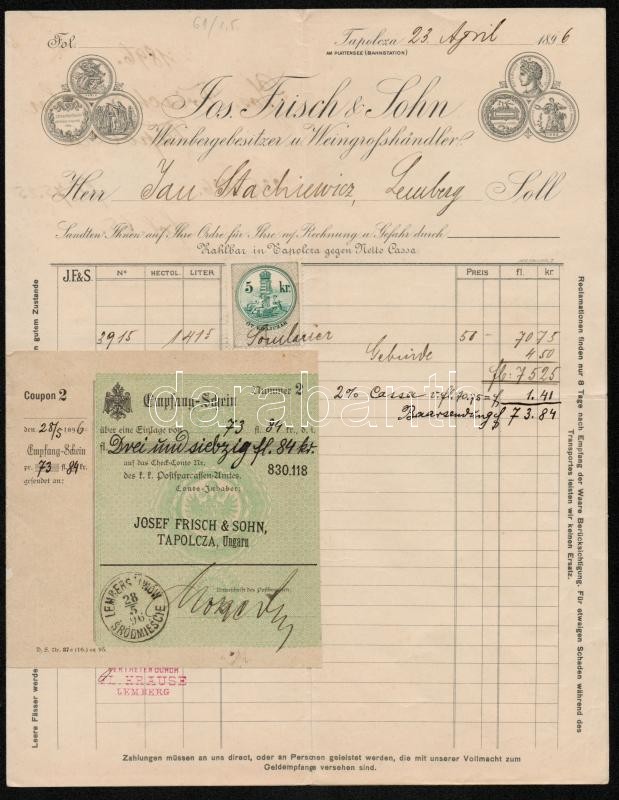 61/1.5.
Fol.
Tapolcza 23. April 1896
AM PLATTENSEE (BAHNSTATION)
Jos. Frisch & Sohn
Weinbergebesitzer u. Weingrosshändler.
Herr Jan Stachiewicz, Lemberg Soll
Sandten Ihnen auf Ihre Ordre für Ihre w/ Rechnung u. Gefahr durch
Zahlbar in Tapolcza gegen Netto Cassa
J.F.&S. No HECTOL. LITER PREIS fl. kr.
5 kr.
3915 1415 50 — 70 75
Gebinde 4 50
fl. 75 25
2% Cassa v. fl. 70,75 = 1.41
Baarsendung fl 73.84
Coupon 2
den 28/5 1896
Empfang-Schein
pr. 73 fl. 84 kr.
gesendet an:
Empfang-Schein Nummer 2
über eine Einlage von 73 fl. 84 kr., d. i.
fl. Drei und siebzig fl. 84 kr.
auf das Check-Conto Nr. 830.118
des k. k. Postsparcassen-Amtes.
Conto-Inhaber:
JOSEF FRISCH & SOHN,
TAPOLCZA, Ungarn
Unterschrift des Postbeamten:
LEMBERG LWÓW
28
5
96
ŚRÓDMIEŚCIE
D. S. Nr. 87a (16.) ex 95.
VERTRETEN DURCH
KRAUSE
LEMBERG
n gutem Zustande
Leere Fässer werde
Reclamationen finden nur 8 Tage nach Empfang der Waare Berücksichtigung. Für etwaigen Schaden während des
Transportes leisten wir keinen Ersatz.
Zahlungen müssen an uns direct, oder an Personen geleistet werden, die mit unserer Vollmacht zum
Geldempfange versehen sind.
darabanth